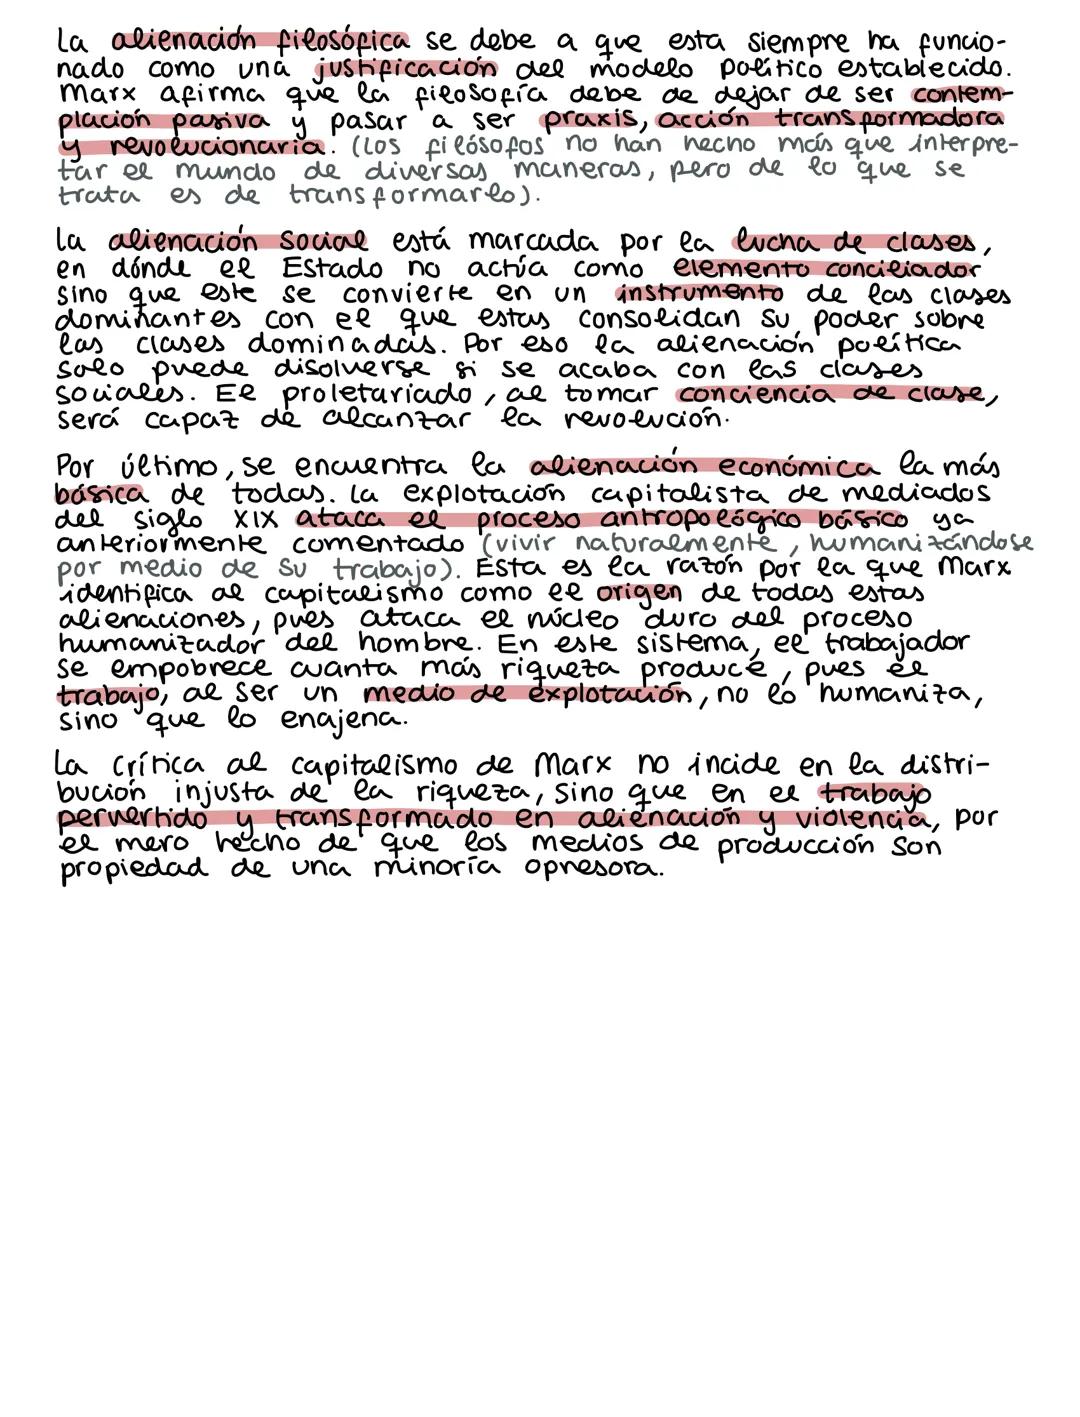 La alienación filosófica se debe a que esta siempre ha funcio-
nado como una justificación del modelo político establecido.
Marx afirma que la filosofía debe de dejar de ser contem-
plación pasiva y pasar a ser praxis, acción transformadora
y revolucionaria. (Los filósofos no han hecho más que interpre-
tar el mundo de diversas maneras, pero de lo que se
trata es de transformarlo).
La alienación social está marcada por la lucha de clases,
en dónde el Estado no actúa como elemento conciliador
sino que este se convierte en un instrumento de las clases
dominantes con el que estas consolidan su poder sobre
las clases dominadas. Por eso la alienación política
solo puede disolverse si se acaba con las clases
sociales. El proletariado, al tomar conciencia de clase,
será capaz de alcanzar la revolución.
Por último, se encuentra la alienación económica la más
básica de todas. La explotación capitalista de mediados
del siglo XIX ataca el proceso antropológico básico ya
anteriormente comentado (vivir naturalmente, humanizándose
por medio de su trabajo). Esta es la razón por la que Marx
identifica al capitalismo como el origen de todas estas
alienaciones, pues ataca el núcleo duro del proceso
humanizador del hombre. En este sistema, el trabajador
se empobrece cuanta más riqueza produce, pues el
trabajo, al ser un medio de explotación, no lo humaniza,
sino que lo enajena.
La crítica al capitalismo de Marx no incide en la distri-
bución injusta de la riqueza, sino que en el trabajo
pervertido y transformado en alienación y violencia, por
el mero hecho de que los medios de producción son
propiedad de una minoría opresora.